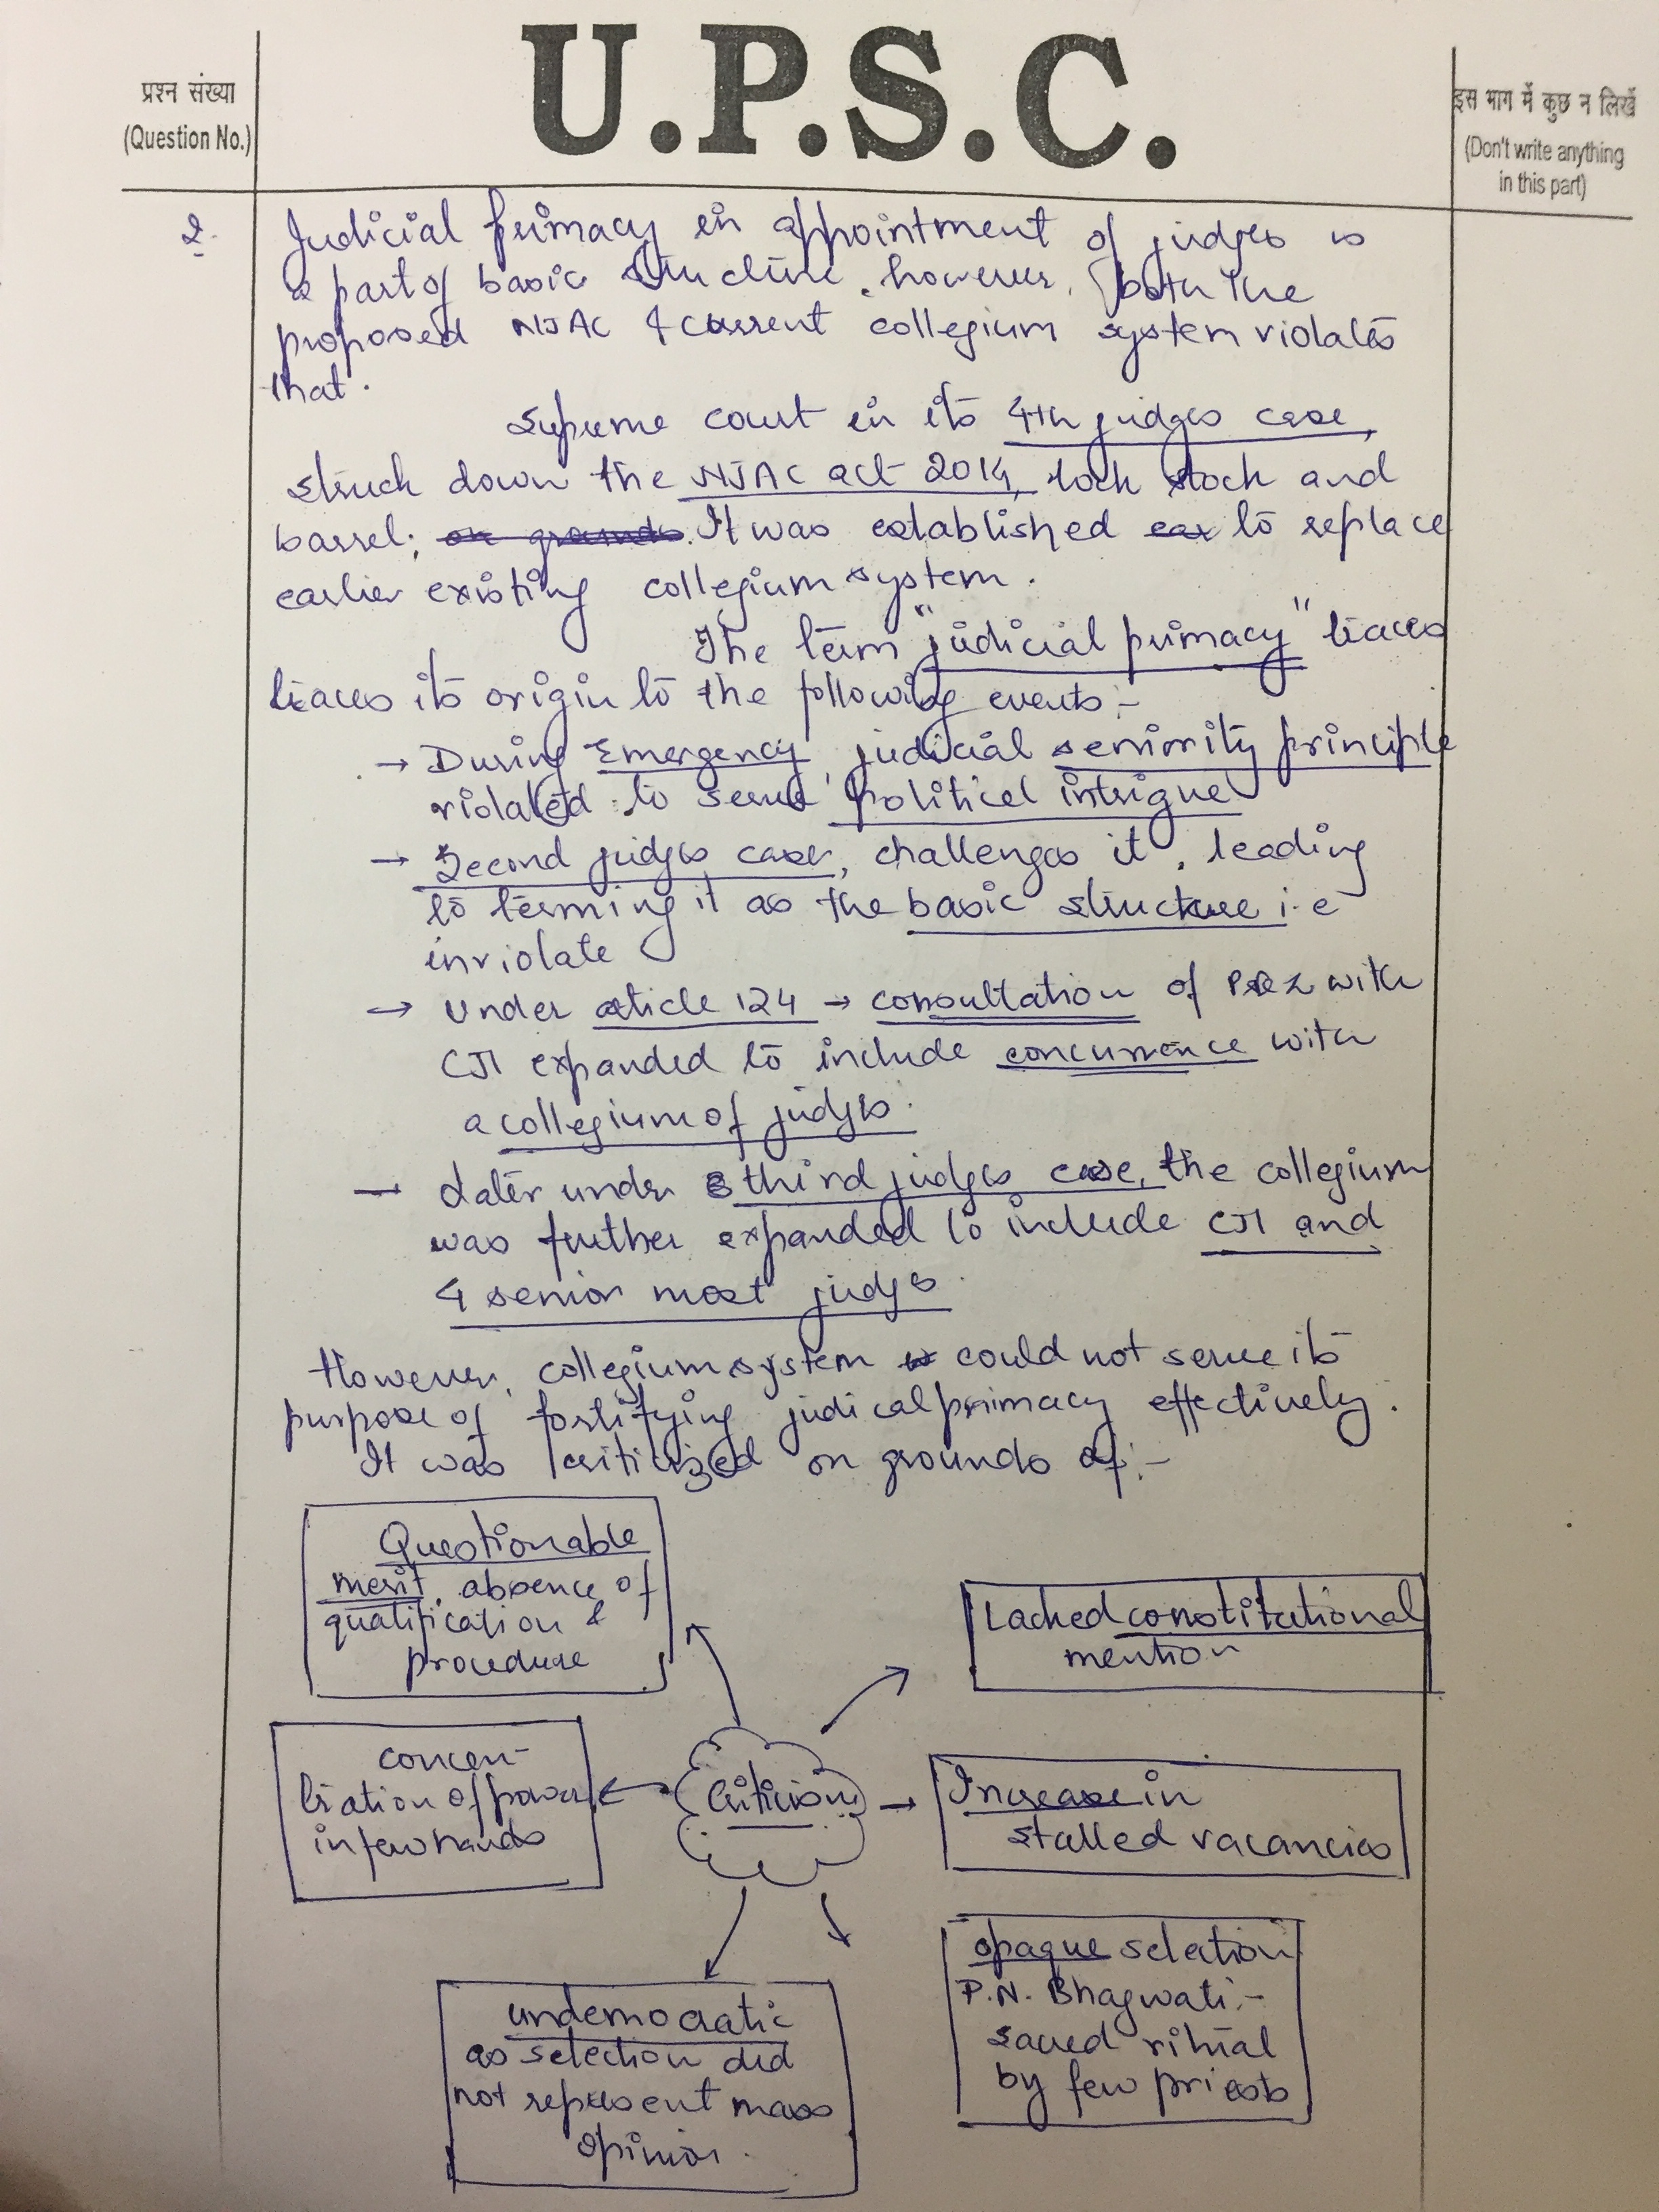 U.P.S.C.
प्रश्न संख्या
(Question No.)
इस भाग में कुछ न लिखें
(Don't write anything
in this part)
2. Judicial primacy in appointment of judges is
a part of basic structure, however, both the
proposed NJAC & current collegium system violates
that.
Supreme court in its 4th judges case,
struck down the NJAC act 2014, lock stock and
barrel; on grounds. It was established ear to replace
earlier existing collegium system.
The term "judicial primacy" traces
traces its origin to the following events:-
→ During Emergency, judicial seniority principle
violated to serve political intrigue
→ Second judges case, challenges it, leading
to terming it as the basic structure i.e
inviolate
→ Under article 124 → consultation of Prez with
CJI expanded to include concurrence with
a collegium of judges.
— Later under third judges case, the collegium
was further expanded to include CJI and
4 senior most judges.
However, collegium system could not serve its
purpose of fortifying judicial primacy effectively.
It was criticized on grounds of:-
Questionable
merit, absence of
qualification &
procedure
Lacked constitutional
mention
concen-
tration of power
in few hands
Criticism
Increase in
stalled vacancies
undemocratic
as selection did
not represent mass
opinion.
opaque selection
P.N. Bhagwati:-
sacred ritual
by few priests